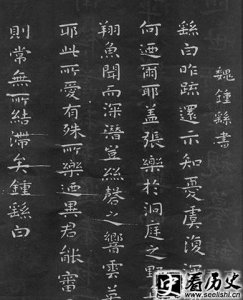 魏鍾繇書
繇白昨疏還示知憂虞復深
何迺爾耶蓋張樂於洞庭之野
翔魚聞而深潛豈絲磬之響雲英
耶此所愛有殊所樂迺異君能審
則常無所結滯矣鍾繇白
看历史